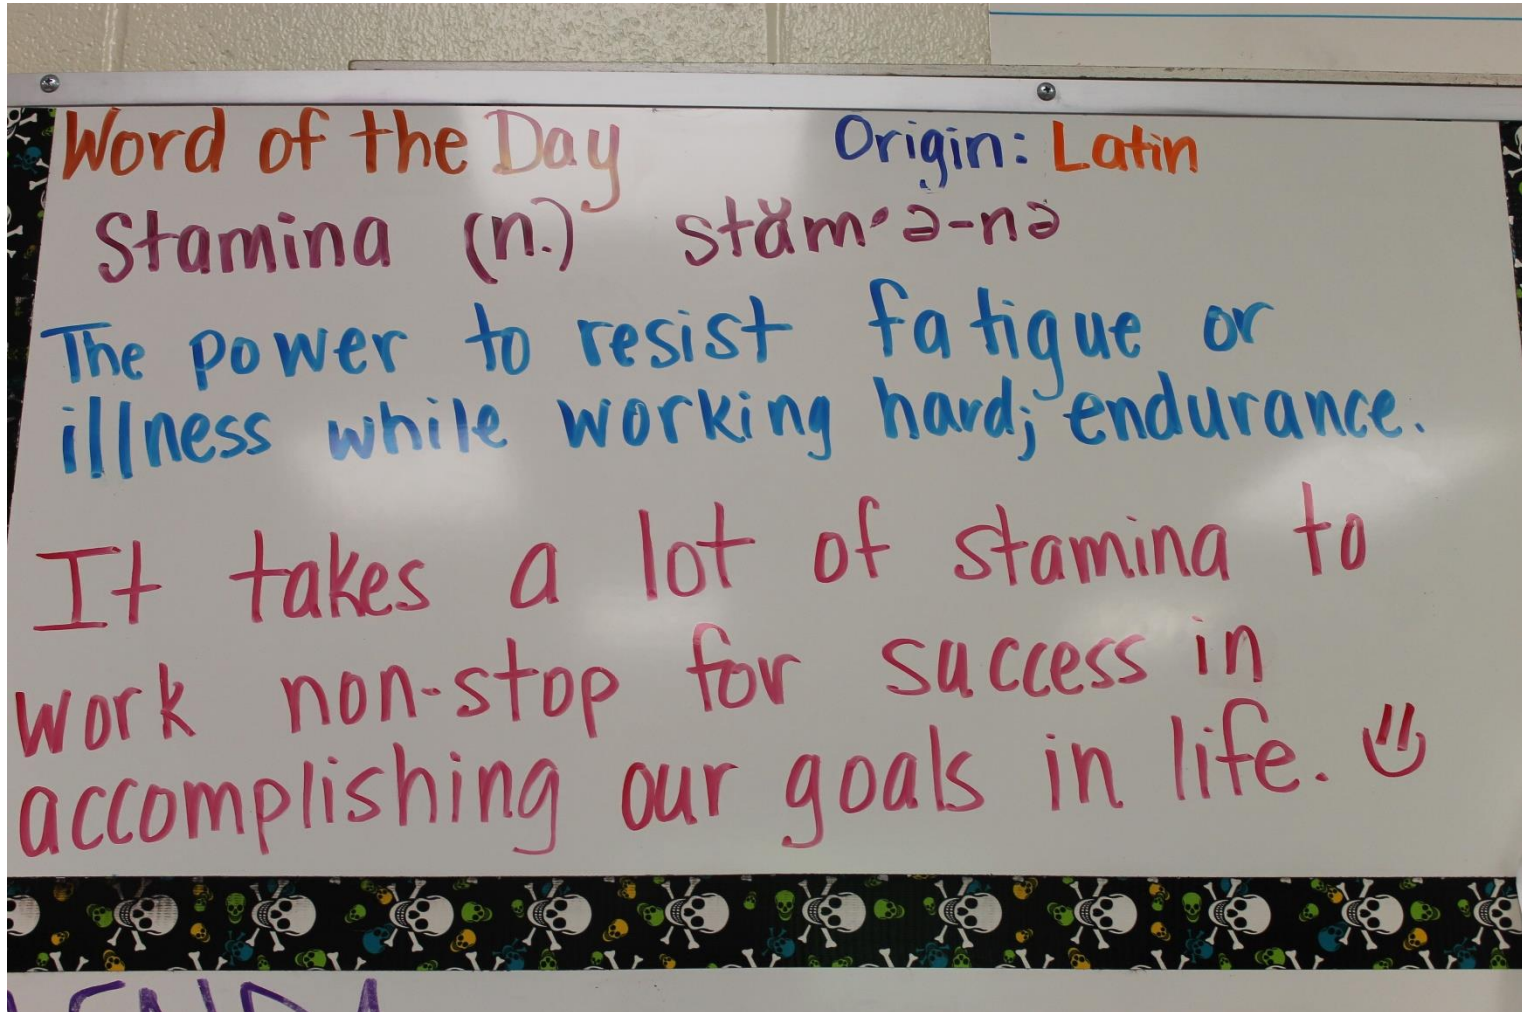 Word of the Day Origin: Latin
Stamina (n.) stăm·ə-nə
The power to resist fatigue or
illness while working hard; endurance.
It takes a lot of stamina to
work non-stop for success in
accomplishing our goals in life.